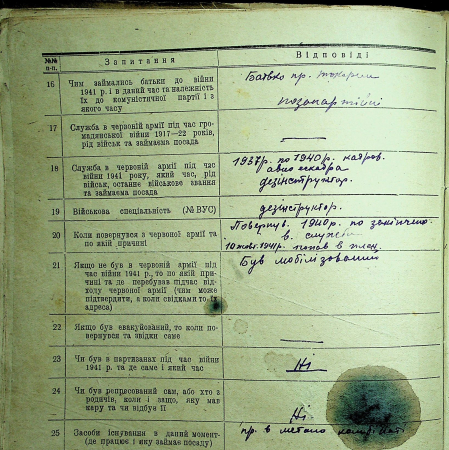 №№ п-п.
Запитання
Відповіді
16
Чим займались батьки до війни
1941 р. і в даний час та належність
їх до комуністичної партії і з
якого часу
Батько пр. токарем
позапартійні
17
Служба в червоній армії під час гро-
мадянської війни 1917—22 років,
рід військ та займаєма посада
—
18
Служба в червоній армії під час
війни 1941 року, який час, рід
військ, останнє військове звання
та займаєма посада
1937р. по 1940р. кадров.
дезінструктор.
19
Військова спеціяльність (№ ВУС)
дезінструктор.
20
Коли повернувся з червоної армії та
по якій причині
Повернув. 1940р. по закінчено
в. служби
1941р. попав в плен.
21
Якщо не був в червоній армії під
час війни 1941 р., то по якій при-
чині та де перебував підчас від-
ходу червоної армії (чим може
підтвердити, а коли свідками то їх
адреса)
Був мобілізований
22
Якщо був евакуйований, то коли по-
вернувся та звідки саме
—
23
Чи був в партизанах під час війни
1941 р. та де саме і який час
Ні
24
Чи був репресований сам, або хто з
родичів, коли і защо, яку мав
кару та чи відбув її
Ні
25
Засоби існування в даний момент-
(де працює і яку займає посаду)
пр. в